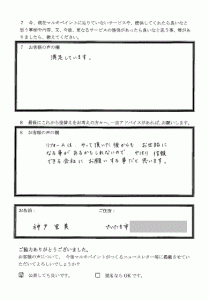 7 今、現在マルモペイントに足りていないサービスや、提供してくれたら良いなと
思う事柄や内容、又、今後、更なるサービスの進展があったら良いなと思う事、等があ
りましたら、教えてください。
7 お客様の声の欄
満足しています。
8 最後にこれから塗替えをお考えの方々へ、一言アドバイスがあれば、お願いします。
8 お客様の声の欄
リフォームは、やって頂いた後からも お世話に
なる事が あるかもしれないので やはり 信頼
できる会社に お願いする事だと思います。
お名前:
ご住所:
神戸 里美
さいたま市
ご協力ありがとうございました。
お客様の声について、今後マルモペイントがつくるニュースレター等に掲載させていた
だいてよろしいでしょうか?
公表しても良いです。
匿名ならOKです。